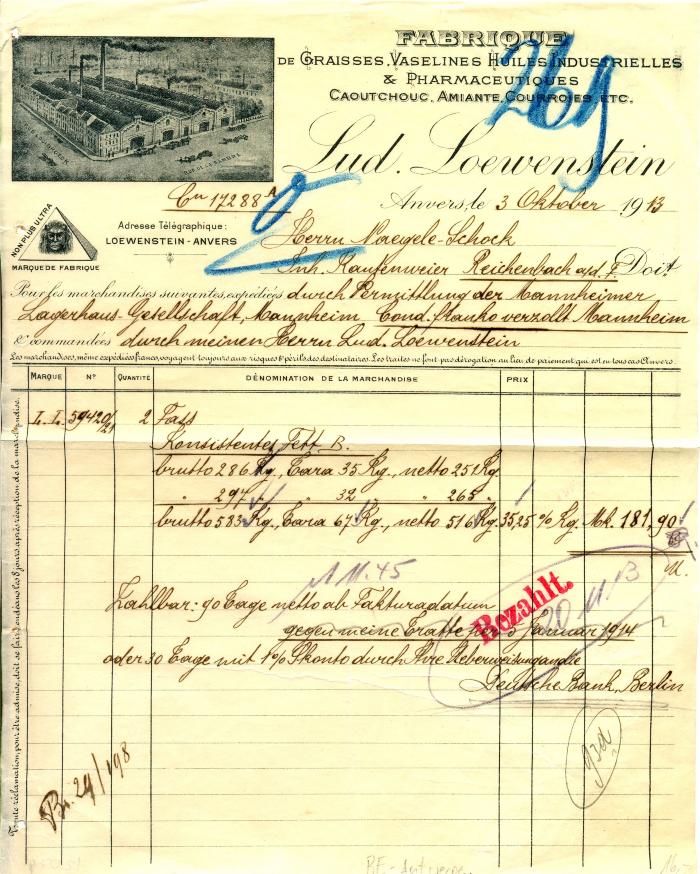 FABRIQUE
DE GRAISSES, VASELINES HUILES INDUSTRIELLES
& PHARMACEUTIQUES
CAOUTCHOUC, AMIANTE, COURROIES, ETC.
Lud. Loewenstein
Cn 17288 A
Anvers, le 3 Oktober 1913
NON PLUS ULTRA
MARQUE DE FABRIQUE
Adresse Télégraphique:
LOEWENSTEIN-ANVERS
Herrn Naegele-Schock
Inh. Reichenbach a/d. F. Doit
Pour les marchandises suivantes, expédiées durch Vermittlung der Mannheimer
Lagerhaus-Gesellschaft, Mannheim Cond. franko verzollt Mannheim
& commandées durch meinen Herrn Lud. Loewenstein
Les marchandises, même expédiées franco, voyagent toujours aux risques & périls des destinataires. Les traites ne font pas dérogation au lieu de paiement qui est en tous cas Anvers.
MARQUE N° QUANTITÉ DÉNOMINATION DE LA MARCHANDISE PRIX
L. L. 59420/21 2 Fass
Konsistentes Fett B.
brutto 286 Kg., Tara 35 Kg., netto 251 Kg.
" 297 " " 32 " " 265 "
brutto 583 Kg., Tara 67 Kg., netto 516 Kg. 35,25 % Kg. Mk. 181,90
11.45
Zahlbar: 90 Tage netto ab Fakturadatum
gegen meine Tratte per 5 Januar 1914
oder 30 Tage mit 1% Skonto durch Ihre Ueberweisung an die
Deutsche Bank, Berlin
Bezahlt.
20 11 13
Toute réclamation, pour être admise, doit se faire endéans les 8 jours après réception de la marchandise.
Br. 29/198